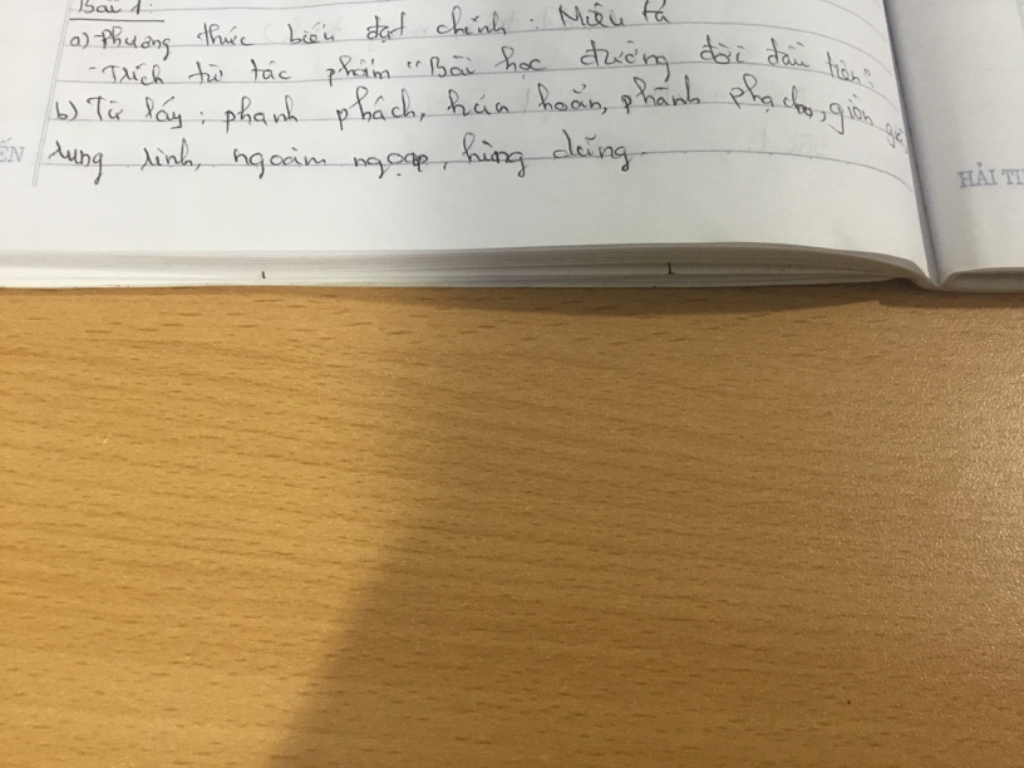 Bài 1:
a) Phương thức biểu đạt chính: Miêu tả
- Trích từ tác phẩm "Bài học đường đời đầu tiên".
b) Từ láy: phanh phách, hủn hoẳn, phành phạch, giòn giã,
rung rinh, ngoàm ngoạp, hùng dũng
ẾN
HẢI TI